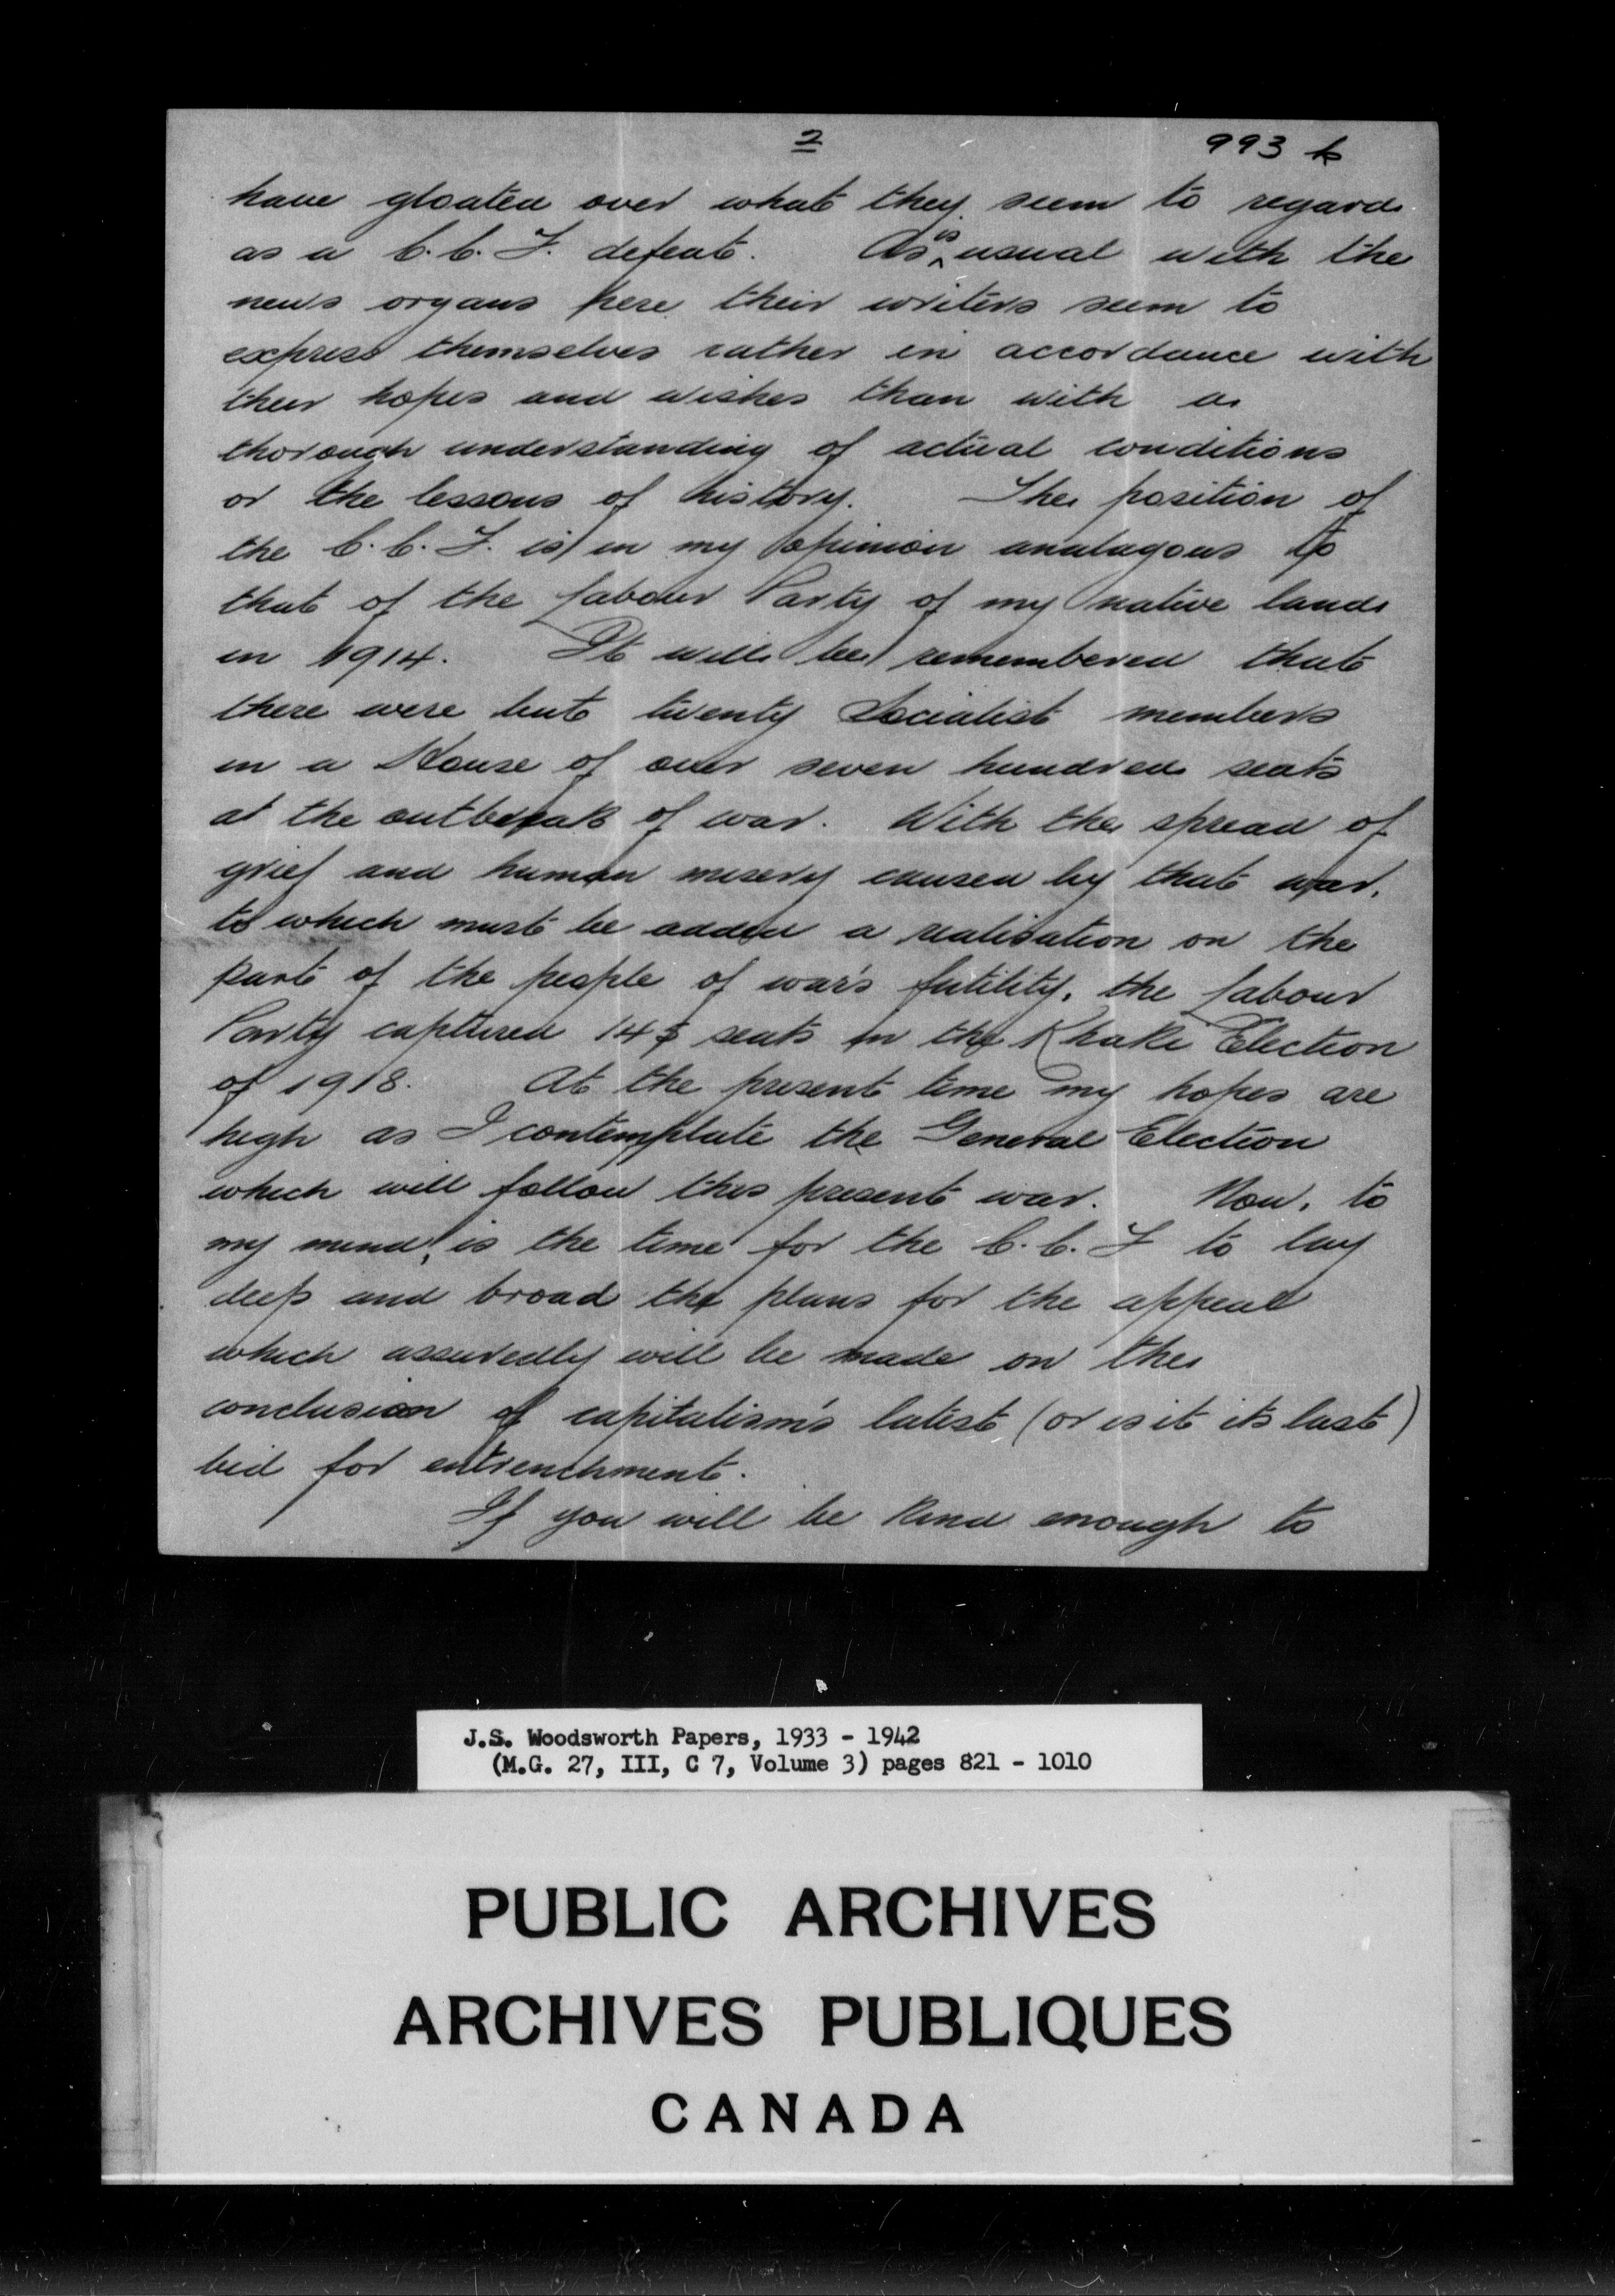 2
993 b
have gloated over what they seem to regard
as a C.C.F. defeat. As is usual with the
news organs here their writers seem to
express themselves rather in accordance with
their hopes and wishes than with a
thorough understanding of actual conditions
or the lessons of history. The position of
the C.C.F. is in my opinion analagous to
that of the Labour Party of my native land
in 1914. It will be remembered that
there were but twenty Socialist members
in a House of over seven hundred seats
at the outbreak of war. With the spread of
grief and human misery caused by that war,
to which must be added a realisation on the
part of the people of war's futility, the Labour
Party captured 14 seats in the Khaki Election
of 1918. At the present time my hopes are
high as I contemplate the General Election
which will follow this present war. Now, to
my mind, is the time for the C.C.F to lay
deep and broad the plans for the appeal
which assuredly will be made on the
conclusion of capitalism's latest (or is it its last)
bid for entrenchment.
If you will be kind enough to
J.S. Woodsworth Papers, 1933 - 1942
(M.G. 27, III, C 7, Volume 3) pages 821 - 1010
PUBLIC ARCHIVES
ARCHIVES PUBLIQUES
CANADA